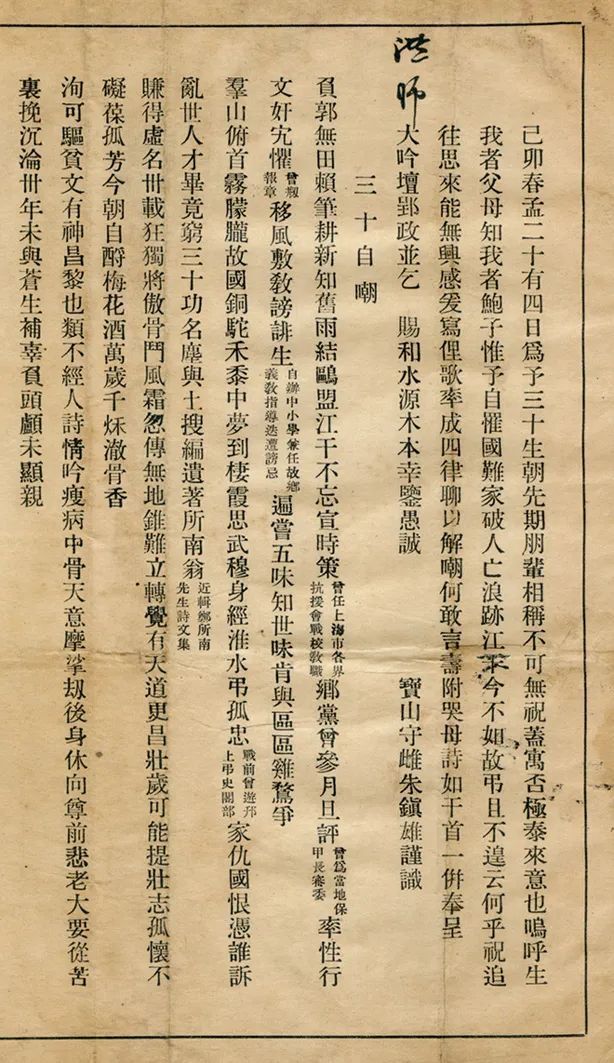 己卯春孟二十有四日爲予三十生朝先期朋輩相稱不可無祝蓋寓否極泰來意也嗚呼生
我者父母知我者鮑子惟予自罹國難家破人亡浪跡江今不如故弔且不遑云何乎祝追
往思來能無興感爰寫俚歌率成四律聊以解嘲何敢言壽附哭母詩如干首一倂奉呈
洪師
大吟壇郢政並乞　賜和水源木本幸鑒愚誠　寶山守雌朱鎭雄謹識
三十自嘲
負郭無田賴筆耕新知舊雨結鷗盟江干不忘宣時策曾任上海市各界抗援會戰校敎職鄉黨曾參月旦評曾爲當地保甲長審委率性行
文奸宄懼曾報章移風敷敎謗誹生自辦中小學兼任故鄉義敎指導迭遭謗忌遍嘗五味知世味肯與區區雞鶩爭
羣山俯首霧朦朧故國銅駝禾黍中夢到棲霞思武穆身經淮水弔孤忠戰前曾遊邗上弔史閣部家仇國恨憑誰訴
亂世人才畢竟窮三十功名塵與土搜編遺著所南翁近輯鄭所南先生詩文集
賺得虛名卅載狂獨將傲骨鬥風霜忽傳無地錐難立轉覺有天道更昌壯歲可能提壯志孤懷不
礙葆孤芳今朝自酹梅花酒萬歲千秌澈骨香
洵可驅貧文有神昌黎也類不經人詩情吟瘦病中骨天意摩挲刼後身休向尊前悲老大要從苦
裏挽沉淪卅年未與蒼生補辜負頭顱未顯親